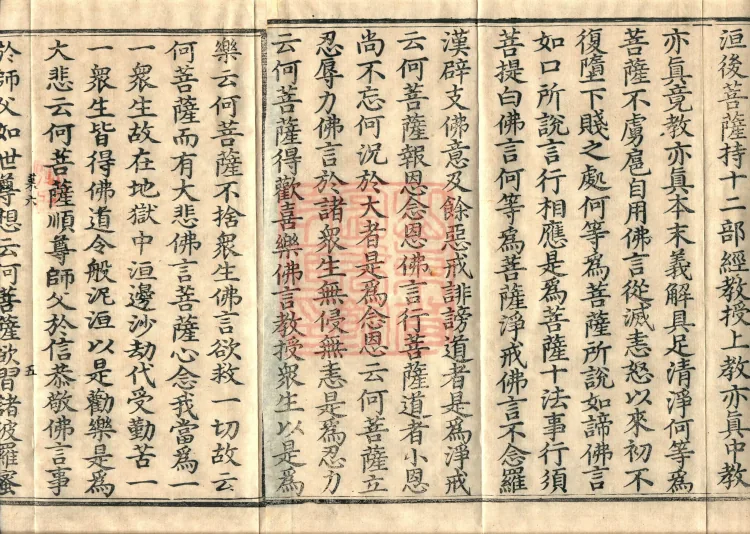 洹後菩薩持十二部經教授上教亦真中教
亦真竟教亦真本末義解具足清淨何等為
菩薩不虜扈自用佛言從滅恚怒以來初不
復墮下賤之處何等為菩薩所說如諦佛言
如口所說言行相應是為菩薩十法事行須
菩提白佛言何等為菩薩淨戒佛言不念羅
漢辟支佛意及餘惡戒誹謗道者是為淨戒
云何菩薩報恩念恩佛言行菩薩道者小恩
尚不忘何況於大者是為念恩云何菩薩立
忍辱力佛言於諸眾生無侵無恚是為忍力
云何菩薩得歡喜樂佛言教授眾生以是為
樂云何菩薩不捨眾生佛言欲救一切故云
何菩薩而有大悲佛言菩薩心念我當為一
一眾生故在地獄中洹邊沙劫代受勤苦一
一眾生皆得佛道令般泥洹以是勸樂是為
大悲云何菩薩順尊師父於信恭敬佛言事
於師父如世尊想云何菩薩欲習諸波羅蜜
五